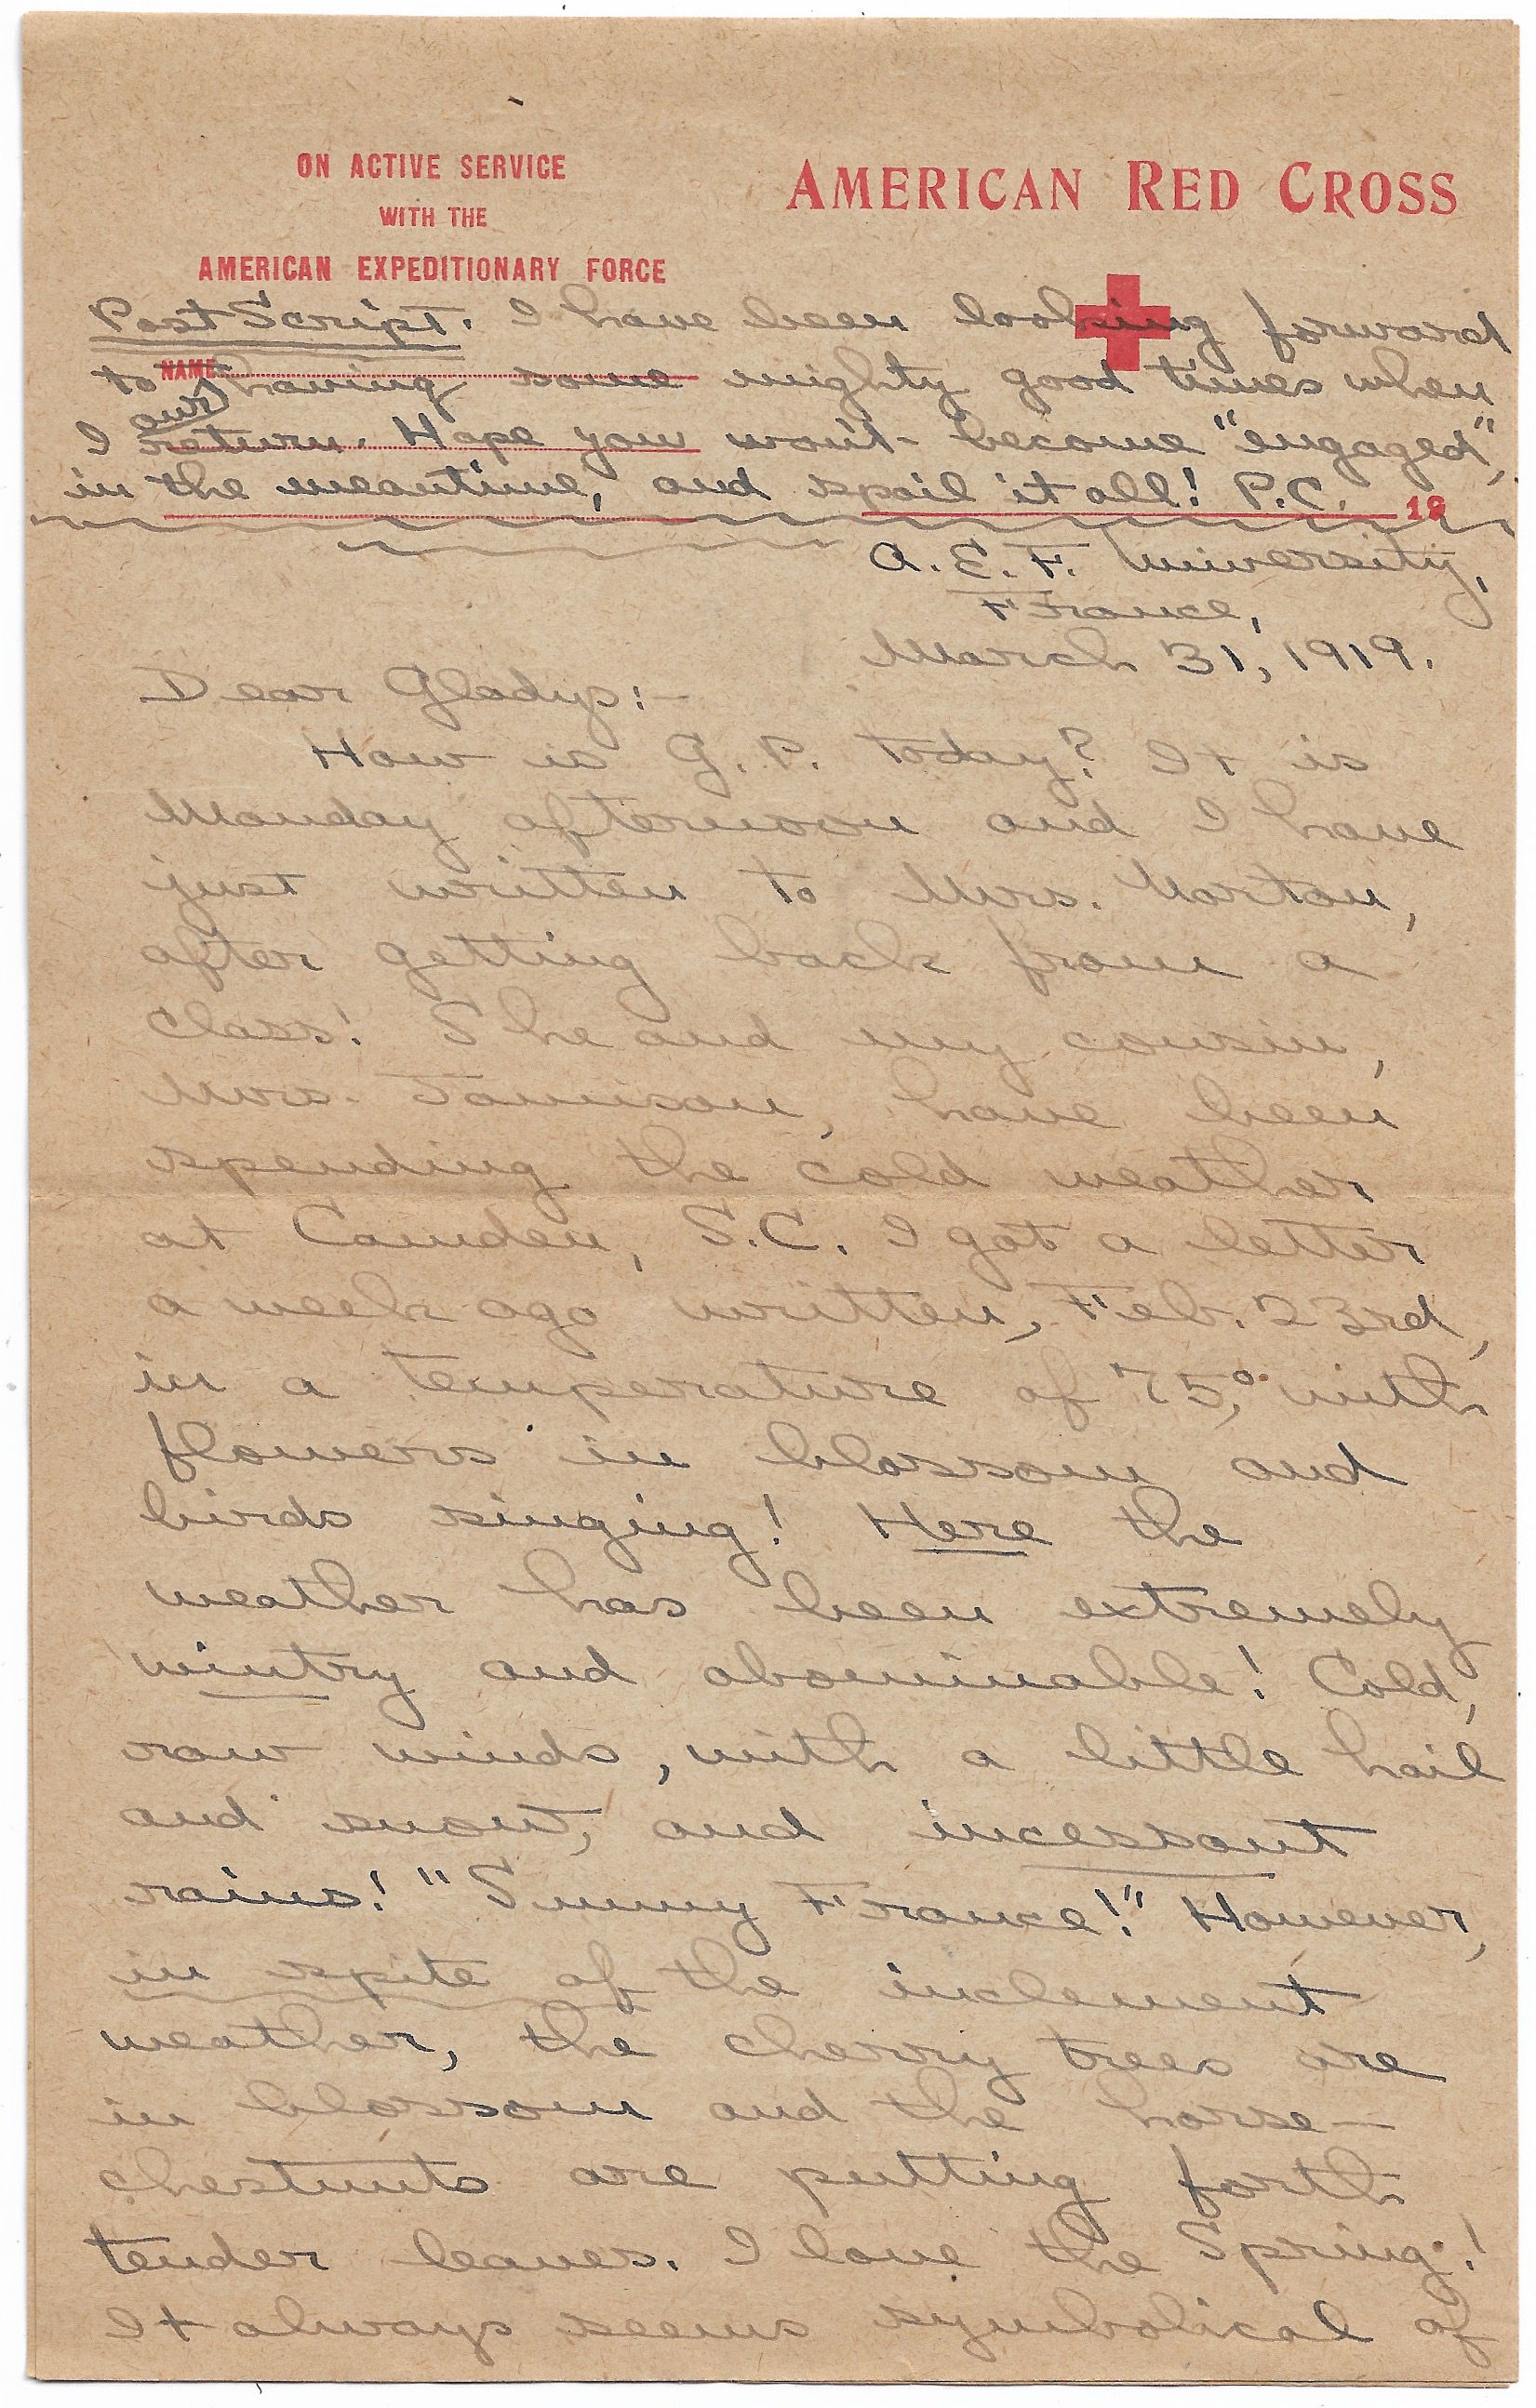 ON ACTIVE SERVICE
WITH THE
AMERICAN EXPEDITIONARY FORCE
AMERICAN RED CROSS
Post Script. I have been looking forward
NAME
to our having some mighty good times when
I return. Hope you won't become "engaged",
in the meantime, and spoil it all! P.C.
19
A.E.F. University,
France,
March 31, 1919.
Dear Gladys:-
How is G.P. today? It is
Monday afternoon and I have
just written to Mrs. Norton,
after getting back from a
class! She and my cousin,
Mrs. Jamison, have been
spending the cold weather
at Camden, S.C. I got a letter
a week ago written, Feb. 23rd,
in a temperature of 75°, with
flowers in blossom and
birds singing! Here the
weather has been extremely
wintry and abominable! Cold,
raw winds, with a little hail
and snow, and incessant
rains! "Sunny France!" However,
in spite of the inclement
weather, the cherry trees are
in blossom and the horse-
chestnuts are putting forth
tender leaves. I love the Spring!
It always seems symbolical of